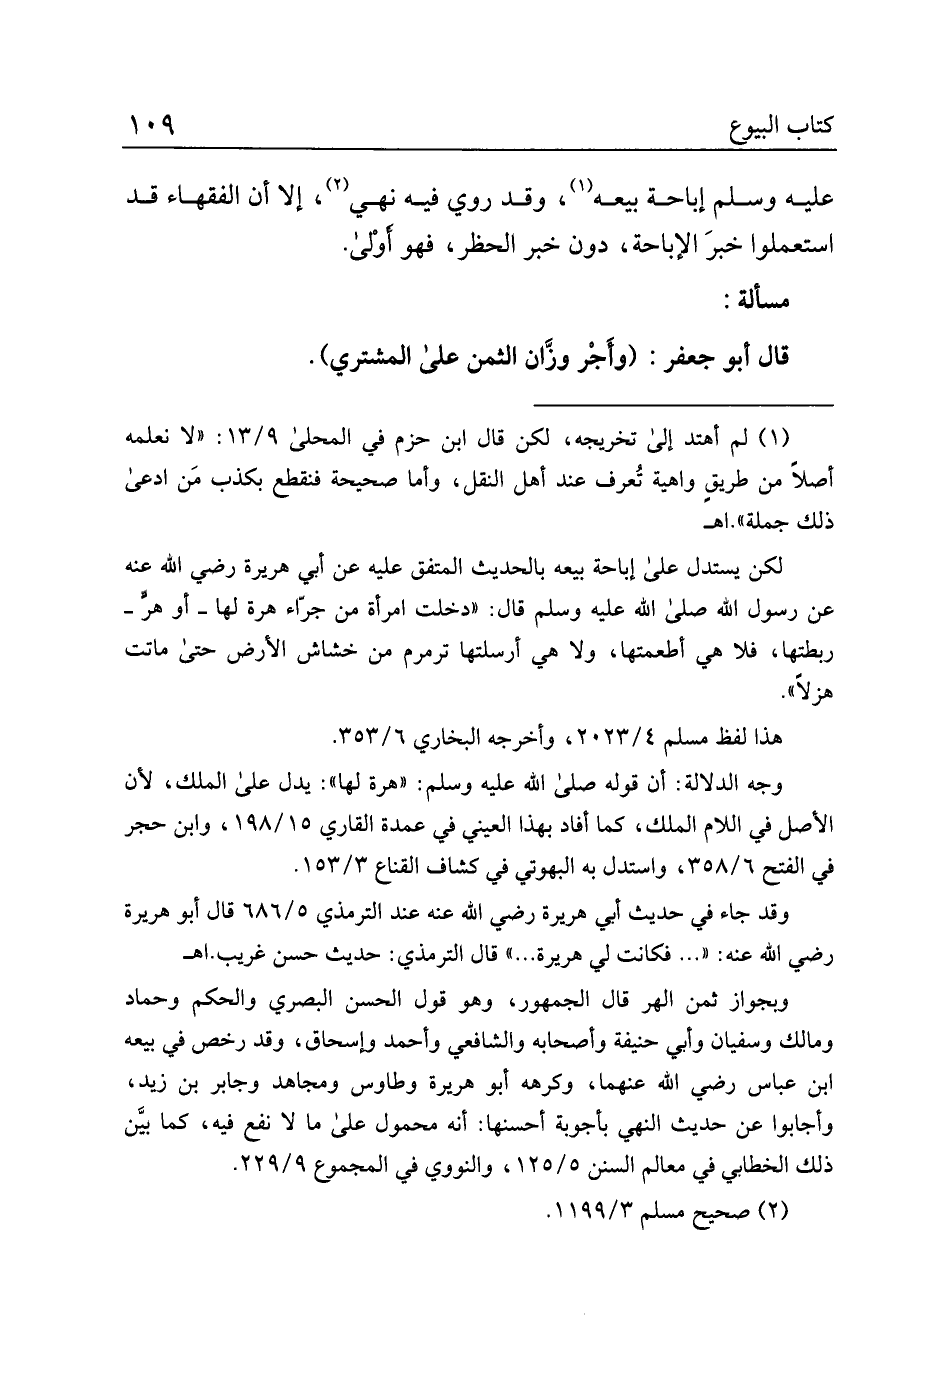 كتاب البيوع ١٠٩
عليه وسلم إباحة بيعه(١)، وقد روي فيه نهي(٢)، إلا أن الفقهاء قد
استعملوا خبرَ الإباحة، دون خبر الحظر، فهو أَوْلىٰ.
مسألة :
قال أبو جعفر : (وأَجْر وزَّان الثمن علىٰ المشتري).
(١) لم أهتد إلىٰ تخريجه، لكن قال ابن حزم في المحلىٰ ١٣/٩: «لا نعلمه
أصلاً من طريقٍ واهية تُعرف عند أهل النقل، وأما صحيحة فنقطع بكذب مَن ادعىٰ
ذلك جملة».اهـ
لكن يستدل علىٰ إباحة بيعه بالحديث المتفق عليه عن أبي هريرة رضي الله عنه
عن رسول الله صلىٰ الله عليه وسلم قال: «دخلت امرأة من جرّاء هرة لها ـ أو هرٍّ ـ
ربطتها، فلا هي أطعمتها، ولا هي أرسلتها ترمرم من خشاش الأرض حتىٰ ماتت
هزلاً».
هذا لفظ مسلم ٢٠٢٣/٤، وأخرجه البخاري ٣٥٣/٦.
وجه الدلالة: أن قوله صلىٰ الله عليه وسلم: «هرة لها»: يدل علىٰ الملك، لأن
الأصل في اللام الملك، كما أفاد بهذا العيني في عمدة القاري ١٩٨/١٥، وابن حجر
في الفتح ٣٥٨/٦، واستدل به البهوتي في كشاف القناع ١٥٣/٣.
وقد جاء في حديث أبي هريرة رضي الله عنه عند الترمذي ٦٨٦/٥ قال أبو هريرة
رضي الله عنه: «... فكانت لي هريرة...» قال الترمذي: حديث حسن غريب.اهـ
وبجواز ثمن الهر قال الجمهور، وهو قول الحسن البصري والحكم وحماد
ومالك وسفيان وأبي حنيفة وأصحابه والشافعي وأحمد وإسحاق، وقد رخص في بيعه
ابن عباس رضي الله عنهما، وكرهه أبو هريرة وطاوس ومجاهد وجابر بن زيد،
وأجابوا عن حديث النهي بأجوبة أحسنها: أنه محمول علىٰ ما لا نفع فيه، كما بيَّن
ذلك الخطابي في معالم السنن ١٢٥/٥، والنووي في المجموع ٢٢٩/٩.
(٢) صحيح مسلم ١١٩٩/٣.